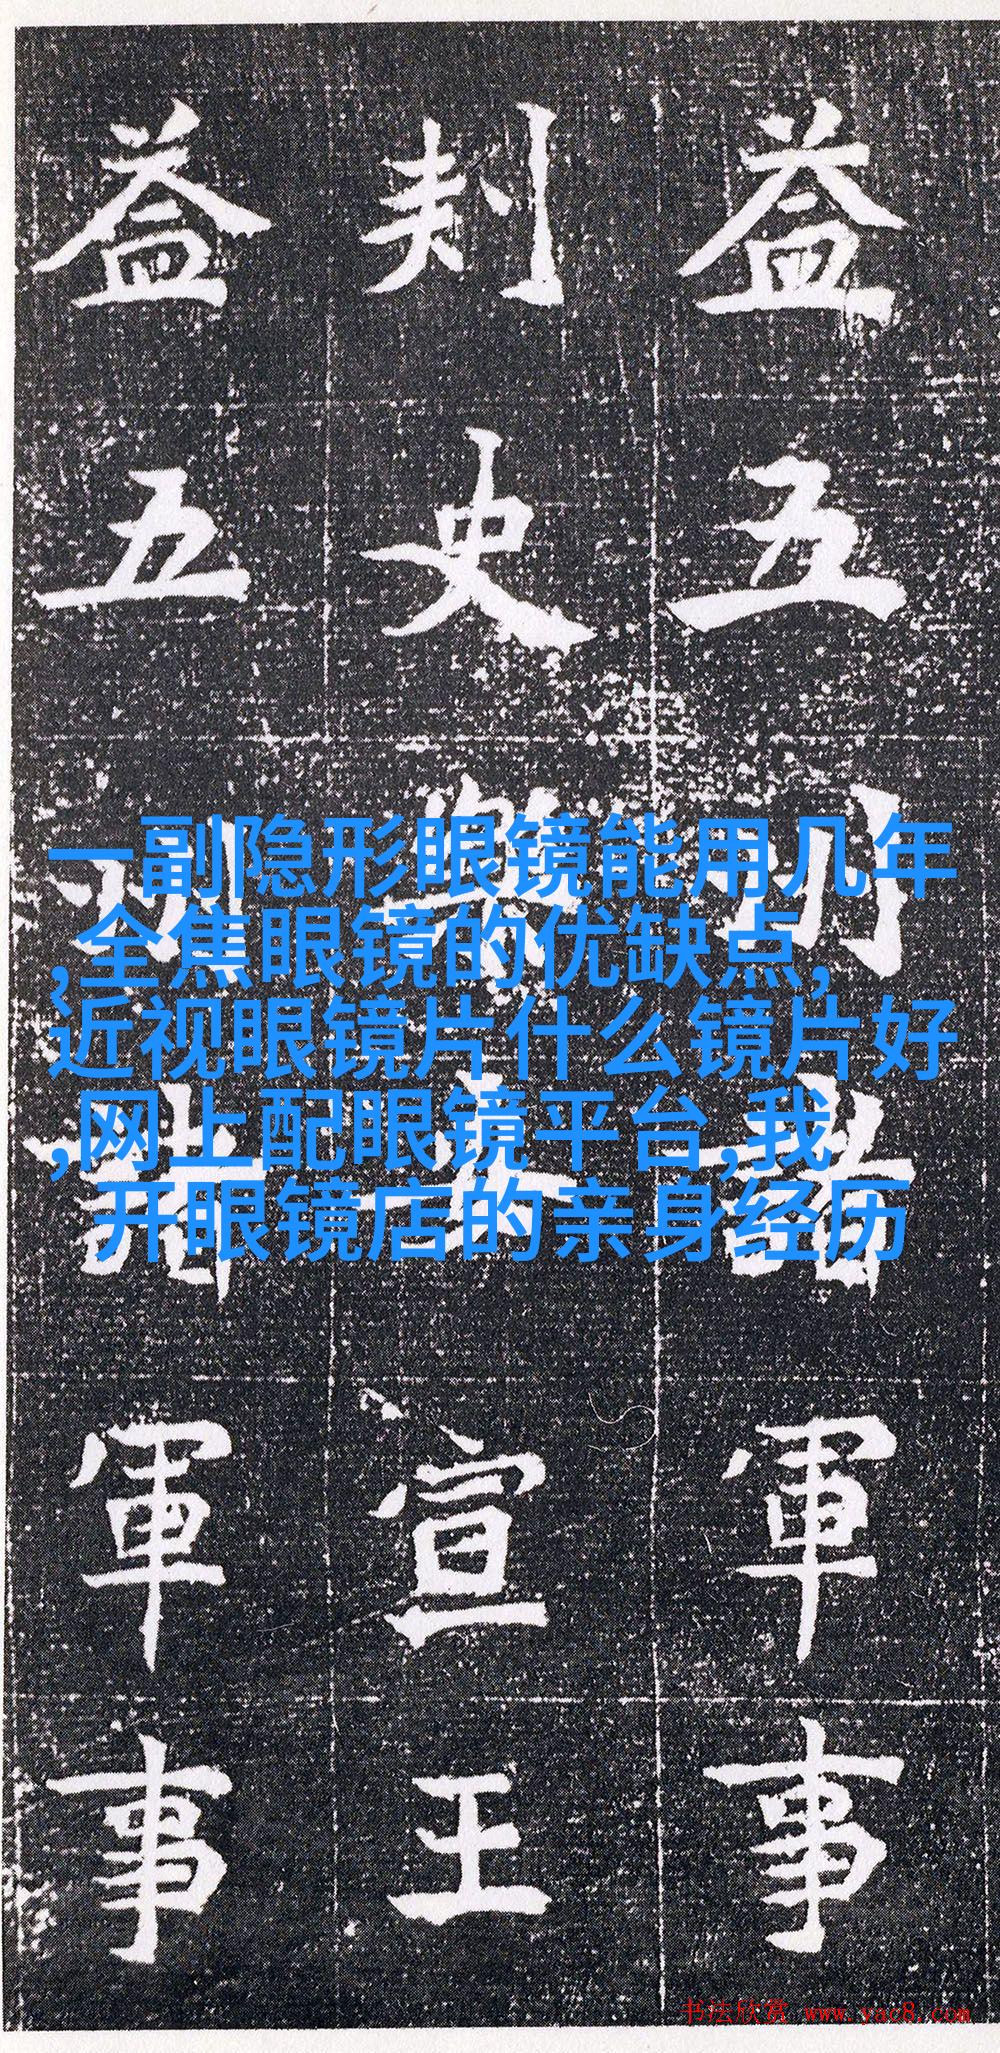 益五州諸軍事
刺史樂安宣王
益五州諸軍事
一副隐形眼镜能用几年
,全焦眼镜的优缺点,
近视眼镜片什么镜片好
,网上配眼镜平台,我
开眼镜店的亲身经历
书法欣赏 www.yac8.com